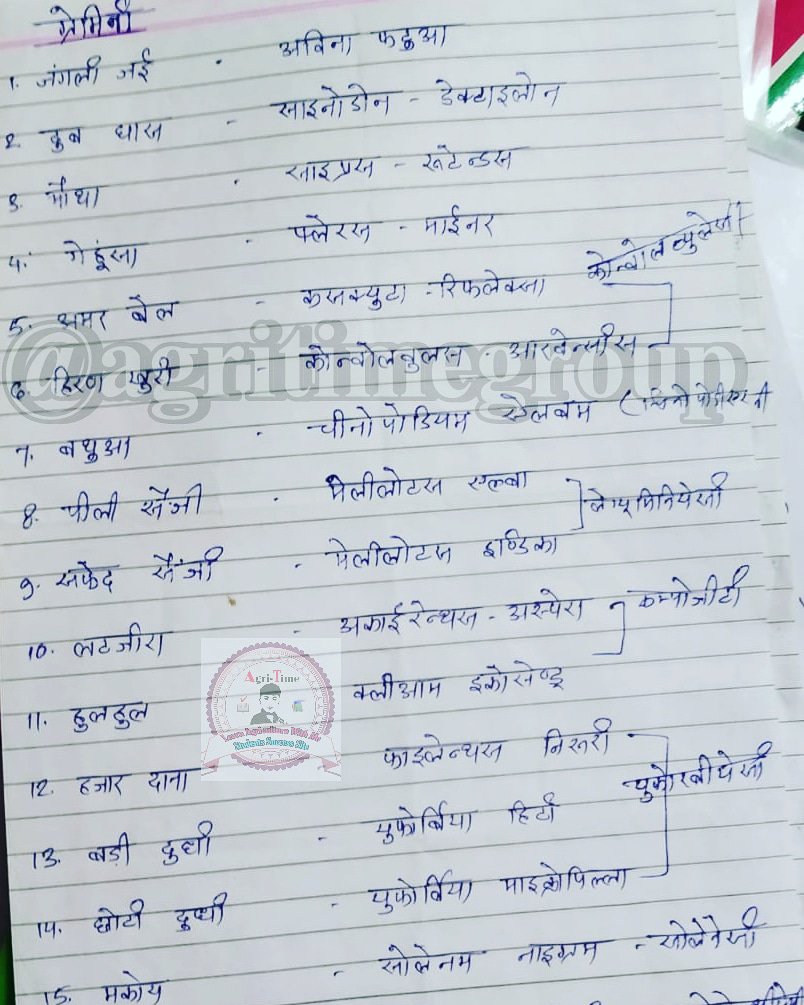 ग्रेमिनी
1. जंगली जई - अविना फटुआ
2. दुब घास - साइनोडोन - डेक्टाइलोन
3. मौथा - साइप्रस - रूटेन्डस
4. गेहूंसा - फ्लेरस - माईनर
5. अमर बैल - कसक्युटा - रिफलेक्सा
कोन्वोलव्युलेसी
6. हिरण खुरी - कोन्वोलवुलस - आरवेन्सीस
@agritimegroup
7. बथुआ - चीनोपोडियम एलबम
8. पीली सैंजी - मेलीलोटस एल्बा
लेग्यूमिनियेसी
9. सफेद सैंजी - मेलीलोटस इण्डिका
10. लटजीरा - अकाईरेन्थस - अस्पेरा
कम्पोजीटी
Agri-Time
Learn Agriculture With Us
Students Success Site
11. हुलहुल क्लीआम इकोसेण्ड्र
12. हजार दाना फाइलेन्थस निरूरी
युफोरबीयेसी
13. बड़ी दुधी - युफोर्बिया हिर्टा
14. छोटी दुधी - युफोर्बिया माइक्रोफिल्ला
15. मकोय - सोलेनम नाइग्रम - सोलेनेसी